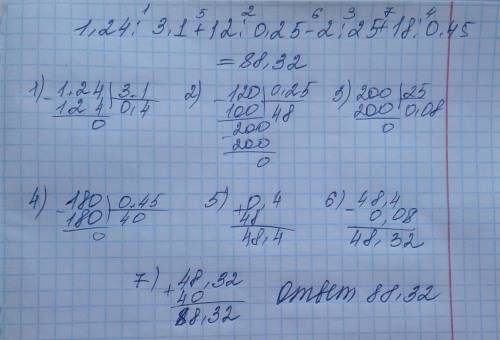 1 5 2 6 3 7 4
1,24 : 3,1 + 12 : 0,25 - 2 : 25 + 18 : 0,45
= 88,32
1) - 1.24 | 3.1
1 2 4 | 0,4
0
2) - 120 | 0,25
100 | 48
- 200
200
0
3) - 200 | 25
200 | 0,08
0
4) - 180 | 0.45
180 | 40
0
5) + 0,4
48
48,4
6) - 48,4
0,08
48,32
7) + 48,32
40
88,32
ответ 88,32